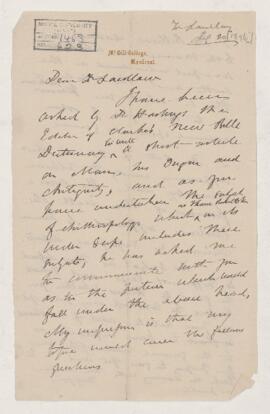 To Laidlaw
McGill College,
Montreal.
Dear Dr Laidlaw
I have been
asked by Dr Hastings the
Editor of Clark's New Bible
Dictionary to write a short article
on Man, his Origin and
Antiquity, and as you
have undertaken the subject
of Anthropology which in its
wider scope includes these
subjects, he has asked me
to communicate with you
as to the points which would
fall under the above head,
My impression is that my
must cover the following
questions